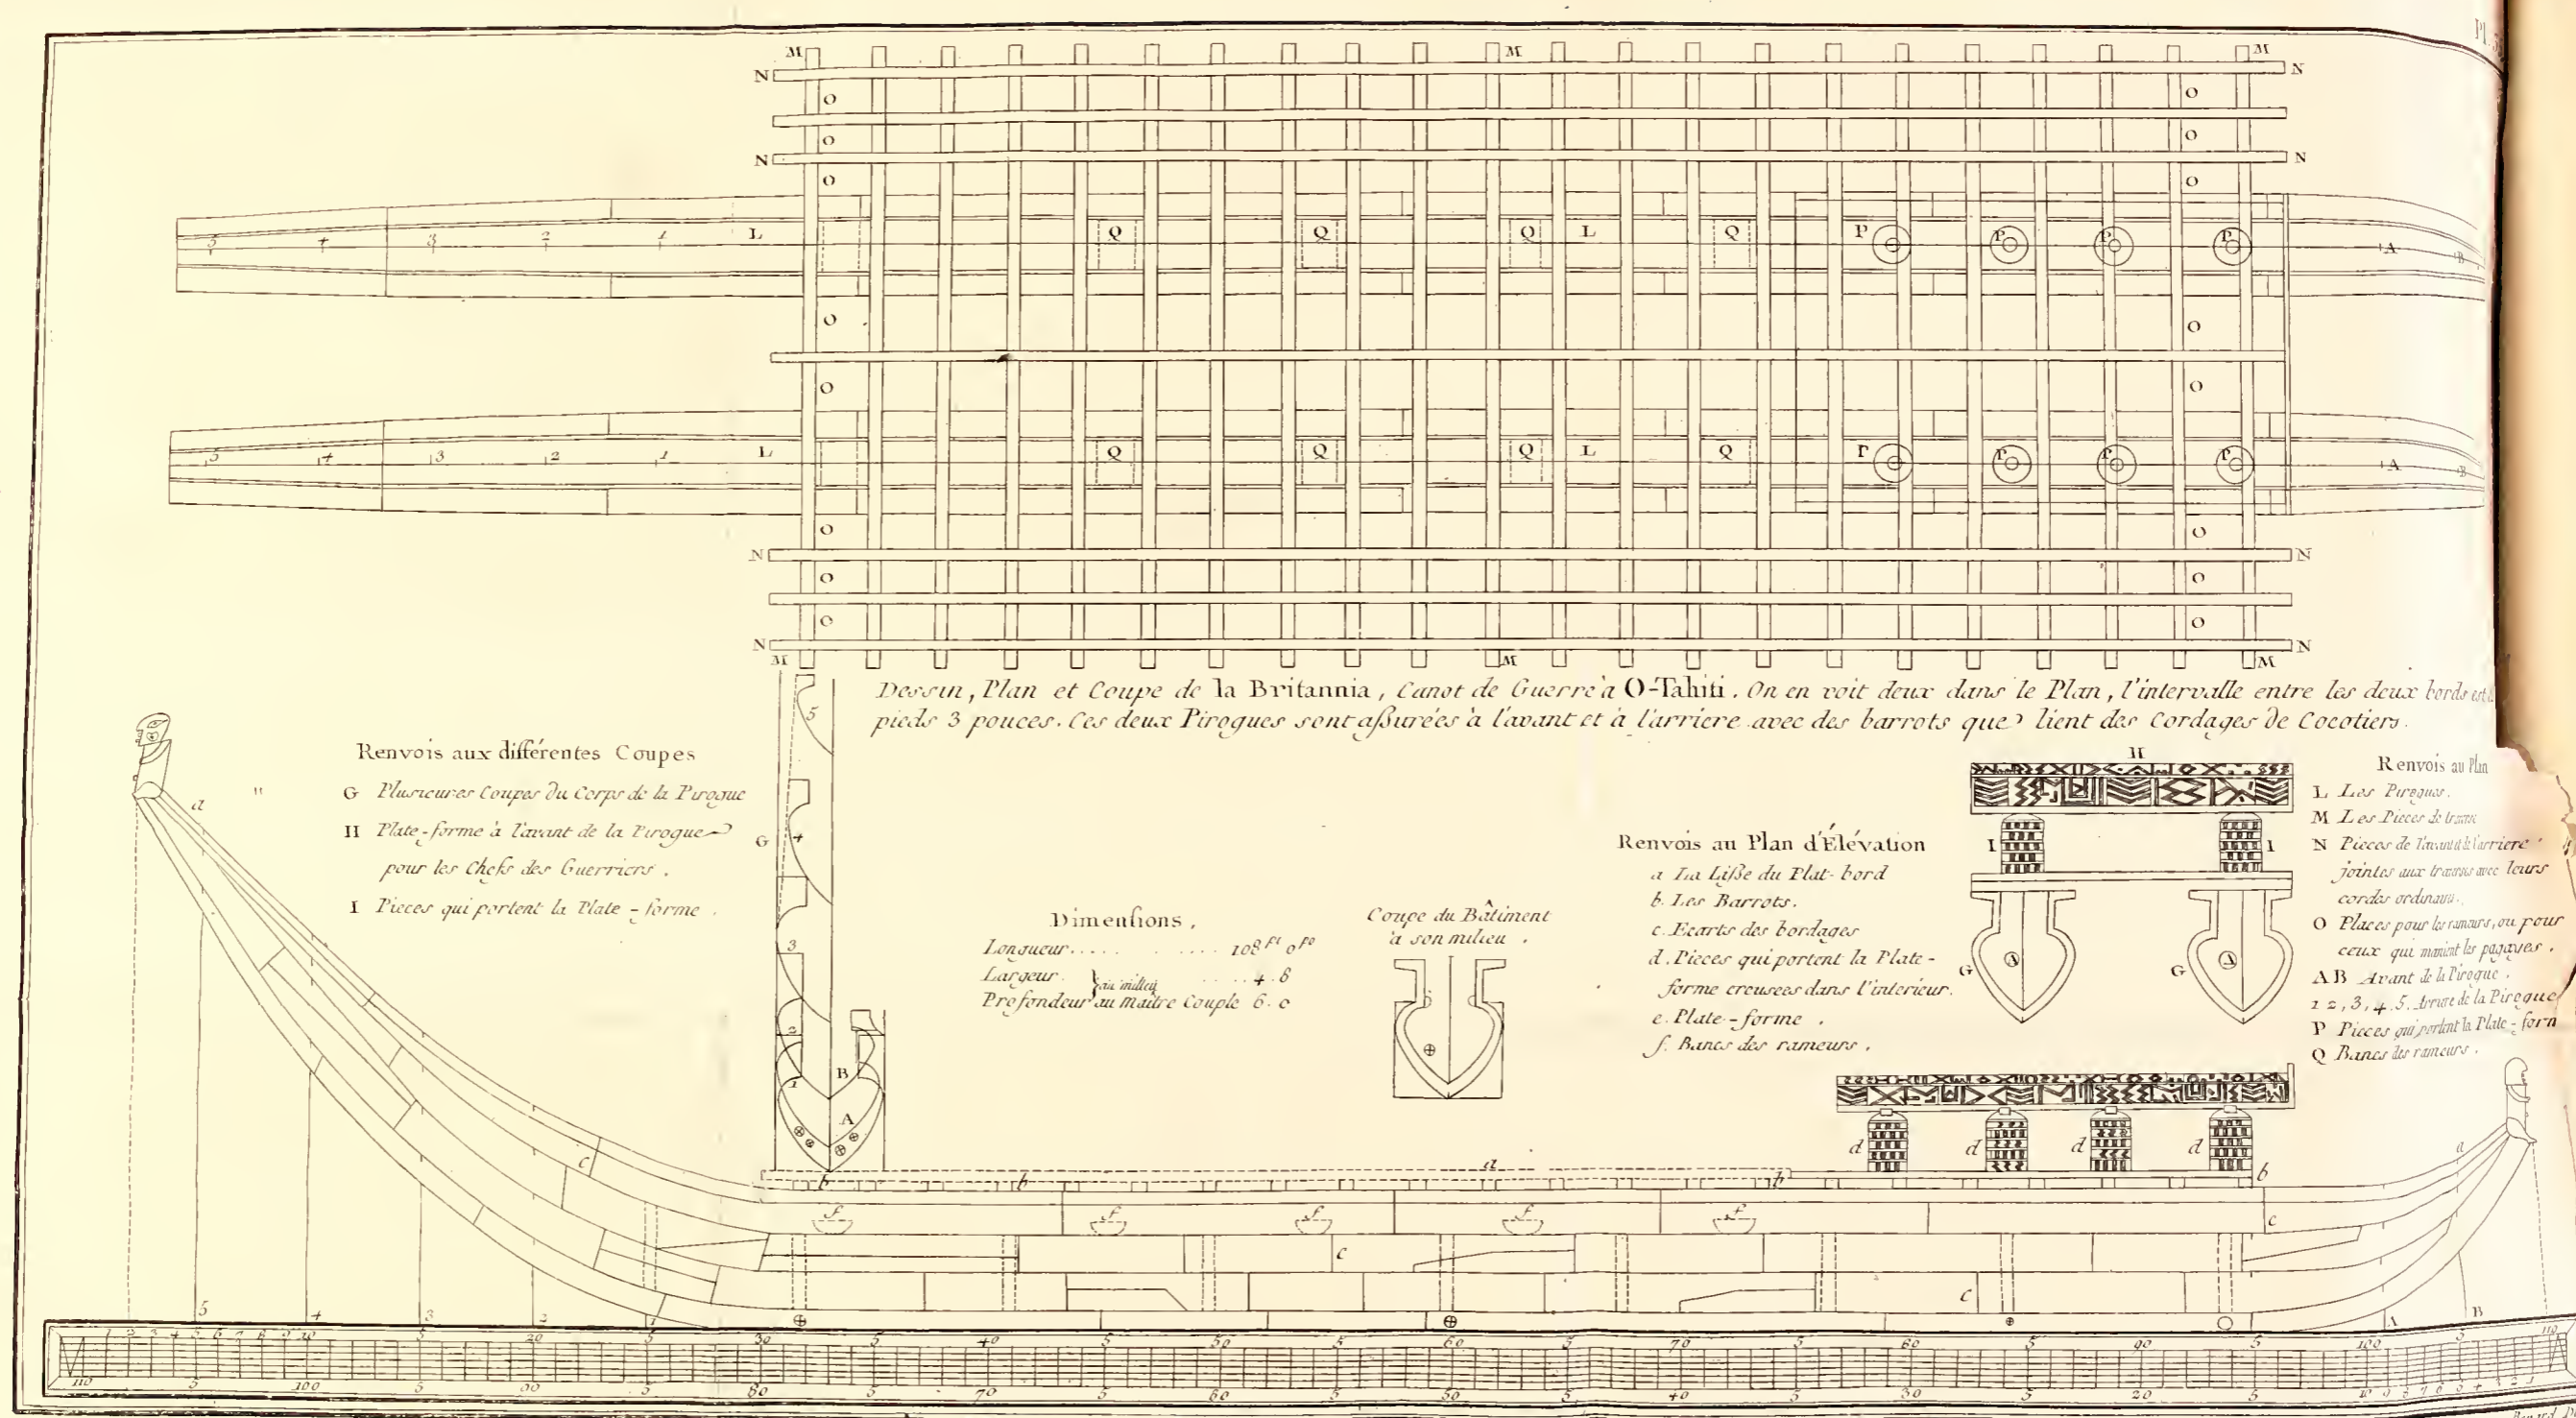 Pl. 3
Dessin, Plan et Coupe de la Britannia, Canot de Guerre à O-Tahiti. On en voit deux dans le Plan, l'intervalle entre les deux bords est
pieds 3 pouces. Ces deux Pirogues sont aßurées à l'avant et à l'arriere avec des barrots que lient des Cordages de Cocotiers.
Renvois aux différentes Coupes
G Plusieures Coupes du Corps de la Pirogue
H Plate-forme à l'avant de la Pirogue
pour les Chefs des Guerriers.
I Pieces qui portent la Plate-forme.
Dimensions.
Longueur.... .... 108 Pi 0 Po
Largeur } au milieu ....4.8
Profondeur au Maître Couple 6.0
Coupe du Bâtiment
à son milieu.
Renvois au Plan d'Élévation
a La Liße du Plat-bord
b. Les Barrots.
c. Ecarts des bordages
d. Pieces qui portent la Plate-
forme creusees dans l'interieur.
e. Plate-forme.
f. Bancs des rameurs.
Renvois au Plan
L Les Pirogues.
M Les Pieces de
N Pieces de l'avant et de l'arriere
jointes aux avec leurs
cordes
O Places pour les rameurs, ou pour
ceux qui manient les pagayes.
AB Avant de la Pirogue.
1 2, 3, 4. 5. Arriere de la Pirogue
P Pieces qui portent la Plate-form
Q Bancs des rameurs.